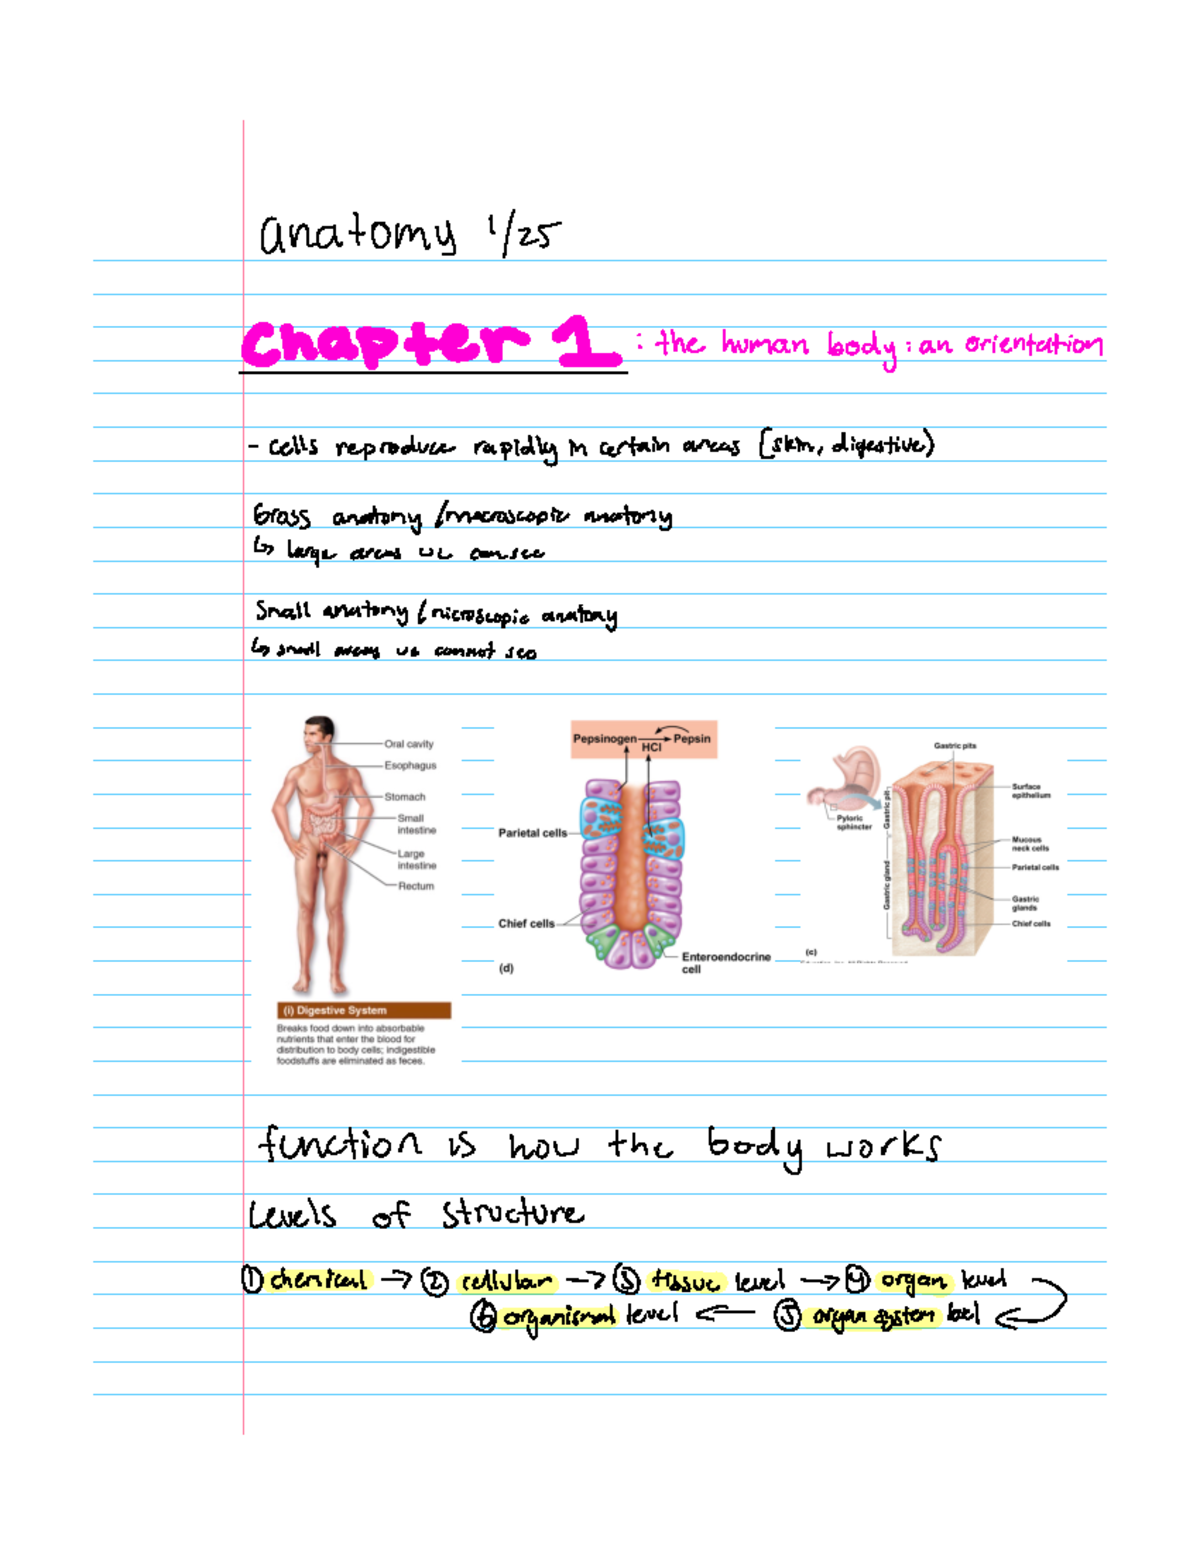 anatomy 1/25
Chapter 1 : the human body : an orientation
- cells reproduce rapidly in certain areas (skin, digestive)
Gross anatomy / macroscopic anatomy
↳ large areas we can see
Small anatomy / microscopic anatomy
↳ small areas we cannot see
Oral cavity
Esophagus
Stomach
Small
intestine
Large
intestine
Rectum
(i) Digestive System
Breaks food down into absorbable
nutrients that enter the blood for
distribution to body cells; indigestible
foodstuffs are eliminated as feces.
Pepsinogen → Pepsin
HCl
Parietal cells
Chief cells
Enteroendocrine
cell
(d)
Gastric pits
Surface
epithelium
Pyloric
sphincter
Gastric pit
Mucous
neck cells
Parietal cells
Gastric gland
Gastric
glands
Chief cells
(c)
function is how the body works
Levels of structure
① chemical → ② cellular → ③ tissue level → ④ organ level
⑥ organismal level ← ⑤ organ system level